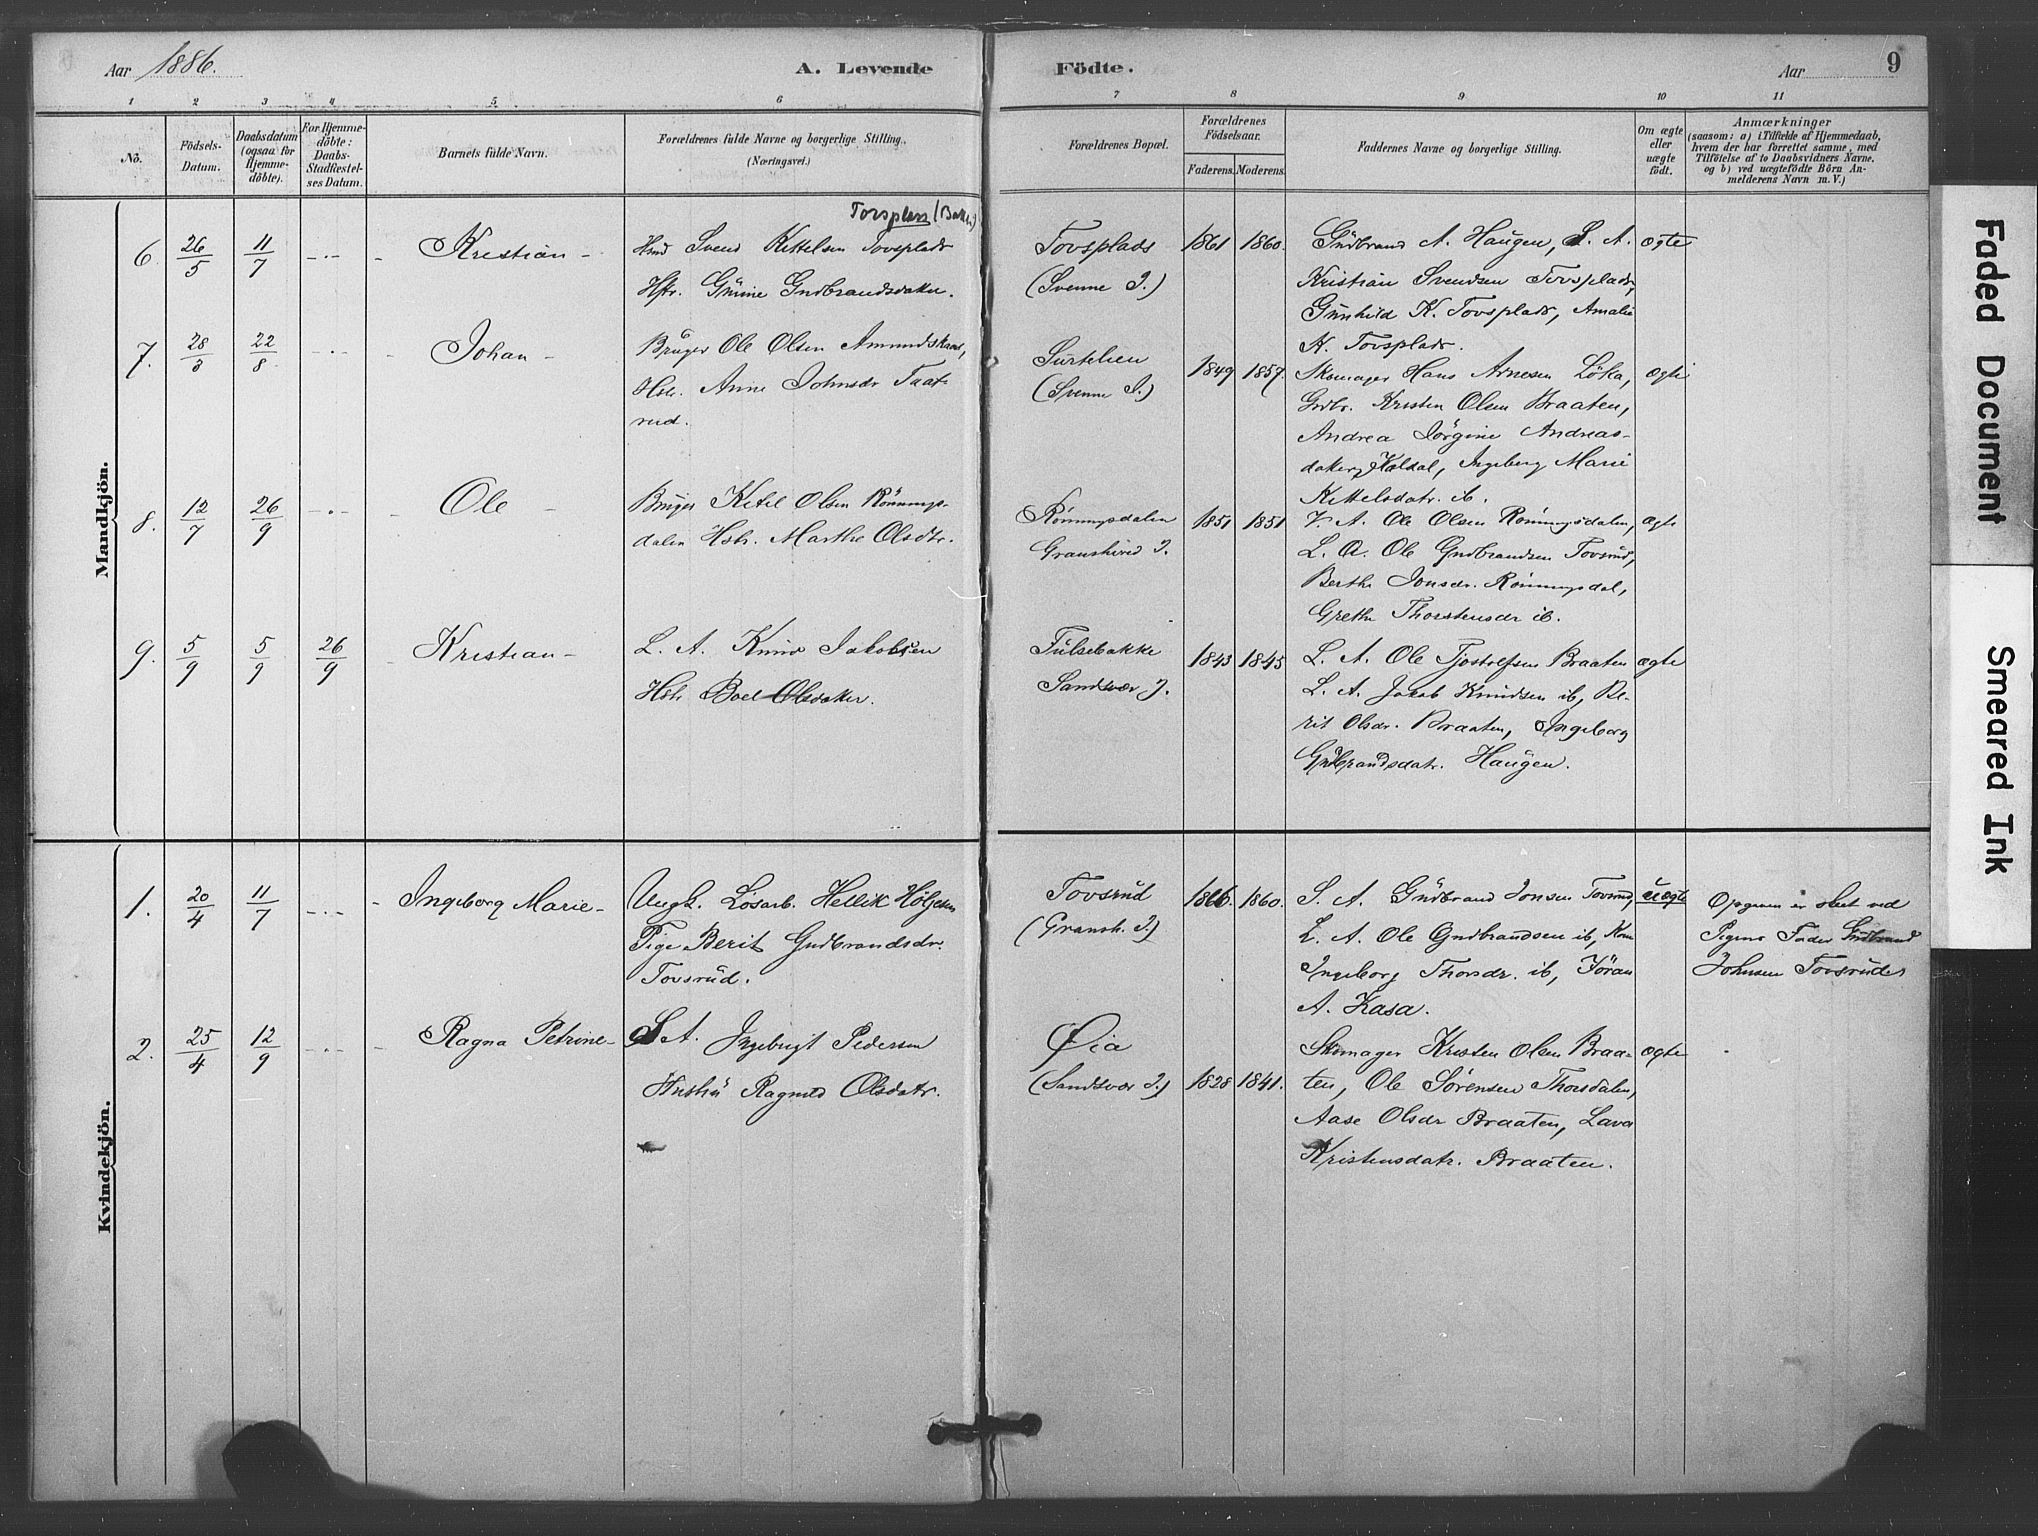 Aar 1886.
A. Levende
Födte.
Aar
9
1 2 3 4 5 6 7 8 9 10 11
No.
Födsels-
Datum.
Daabsdatum
(ogsaa for
Hjemme-
döbte).
For Hjemme-
döbte:
Daabs-
Stadfæstel-
ses Datum.
Barnets fulde Navn.
Forældrenes fulde Navne og borgerlige Stilling.
(Næringsvei.)
Forældrenes Bopæl.
Forældrenes
Födselsaar.
Faderens. Moderens.
Faddernes Navne og borgerlige Stilling.
Om ægte
eller
uægte
födt.
Anmærkninger
(saasom: a) i Tilfælde af Hjemmedaab,
hvem der har forrettet samme, med
Tilföielse af to Daabsvidners Navne.
og b) ved uægtefödte Börn An-
melderens Navn m. V.)
Mandkjön.
6. 26/5 11/7 Kristian
Torsplass
Svend Kittelsen Tovsplads
Gunine Gudbrandsdatter.
Tovsplads
(Svenne
1861 1860.
Gudbrand A. Haugen, L. A.
Kristian Svendsen Tovsplads,
Gunhild K. Tovsplads, Amalie
H. Tovsplads.
ægte
7. 28/3 22/8 Johan
Bruger Ole Olsen
Anne Johnsdr
rud.
(Svenne
1849 1857.
Skomager Hans Arnesen Löka,
Grdbr. Kristen Olsen Braaten,
Andrea Jörgine Andreas-
Ingeborg Marie
Kittelsdatr. ib.
ægte
8. 12/7 26/9 Ole
Bruger Ketel Olsen Rönnings-
dalen Hstr. Marthe Olsdtr.
Rönningsdalen
1851 1851
Ole Olsen Rönningsdalen,
L. A. Ole Gudbrandsen Tovsrud,
Berthe Jonsdr. Rönningsdal,
Grethe Thorstensdr ib.
ægte
9. 5/9 5/9 26/9 Kristian
L. A. Knud Jakobsen
Hstr. Boel Olsdatter.
Tulsebakke
Sandsvær
1843 1845
L. A. Ole Tjostolfsen Braaten
L. A. Jacob Knudsen ib, Be-
rit Olsdr. Braaten, Ingeborg
Gudbrandsdatr. Haugen.
ægte
Kvindekjön.
1. 20/4 11/7 Ingeborg Marie
Ungk. Lösarb. Hellik Höljesen
Pige Berit Gudbrandsdr.
Tovsrud.
Tovsrud
(Gransh.
1860.
S. A. Gudbrand Jonsen Tovsrud,
L. A. Ole Gudbrandsen ib, Kone
Ingeborg Thorsdr. ib, Jöran
A. Kasa.
uægte
Opgaven er skeet ved
Pigens Fader Gudbrand
Johnsen Tovsrud
2. 25/4 12/9 Ragna Petrine
S. A. Ingebrigt Pedersen
Hustru Ragnild Olsdatr.
Øia
(Sandsvær
1828 1841.
Skomager Kristen Olsen Braa-
ten, Ole Sörensen Thorsdalen,
Aase Olsdr Braaten, Lava
Kristensdatr. Braaten.
ægte
Faded Document
Smeared Ink